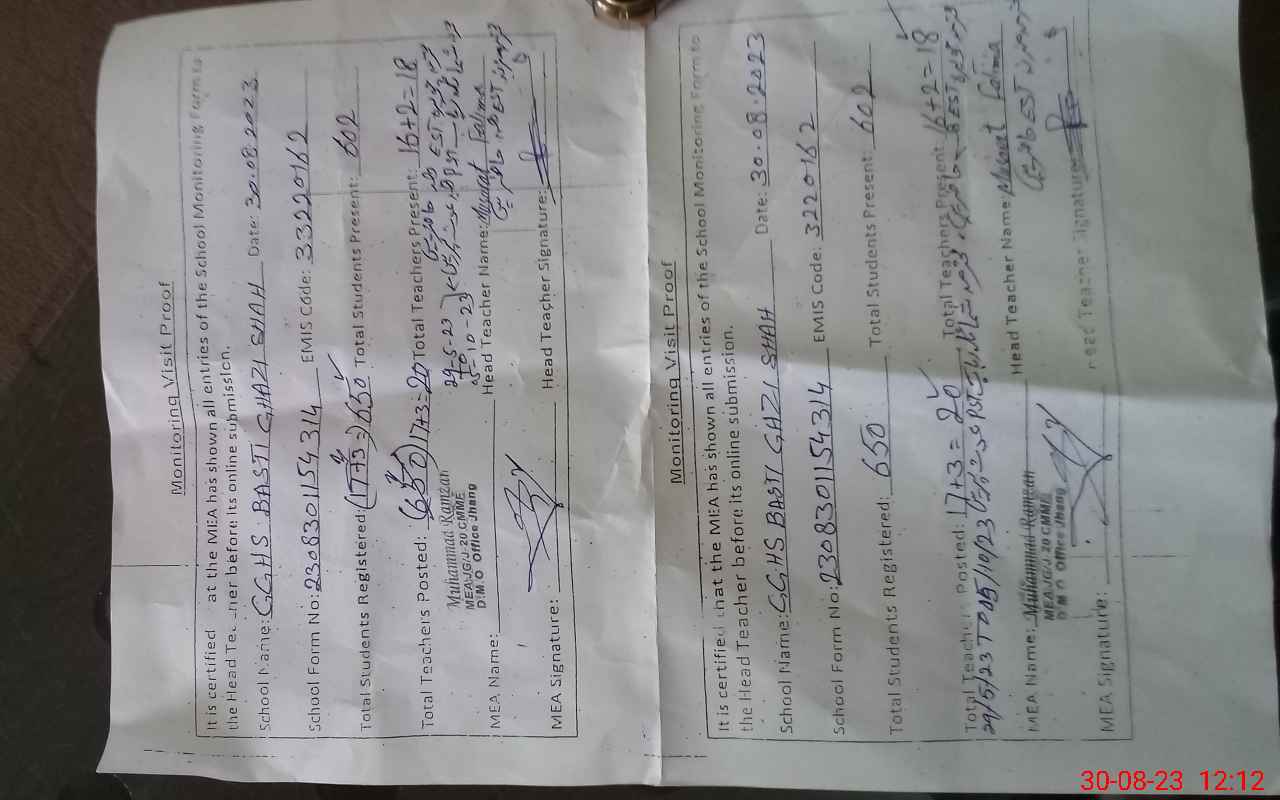 Monitoring Visit Proof
It is certified at the MEA has shown all entries of the School Monitoring Form to
the Head Teacher before its online submission.
School Name: GGHS BASTI GHAZI SHAH Date: 30.08.2023
School Form No: 2308301154314 EMIS Code: 33220162
Total Students Registered: (17+3=) 650 Total Students Present: 602
Total Teachers Posted: (650) 17+3=20 Total Teachers Present: 16+2=18
29-5-23
To
5-10-23
Muhammad Ramzan
MEA JG/J-20 CMME
D.M.O Office Jhang
MEA Name: Head Teacher Name: Musarat Fatima
MEA Signature: Head Teacher Signature:
Monitoring Visit Proof
It is certified that the MEA has shown all entries of the School Monitoring Form to
the Head Teacher before its online submission.
School Name: GGHS BASTI GHAZI SHAH Date: 30.08.2023
School Form No: 2308301154314 EMIS Code: 3220162
Total Students Registered: 650 Total Students Present: 602
Total Teachers Posted: 17+3=20 Total Teachers Present: 16+2=18
29/5/23 To 05/10/23
MEA Name: Muhammad Ramzan Head Teacher Name: Musarat Fatima
MEA JG/J-20 CMME
D.M.O Office Jhang
MEA Signature: Head Teacher Signature:
30-08-23 12:12